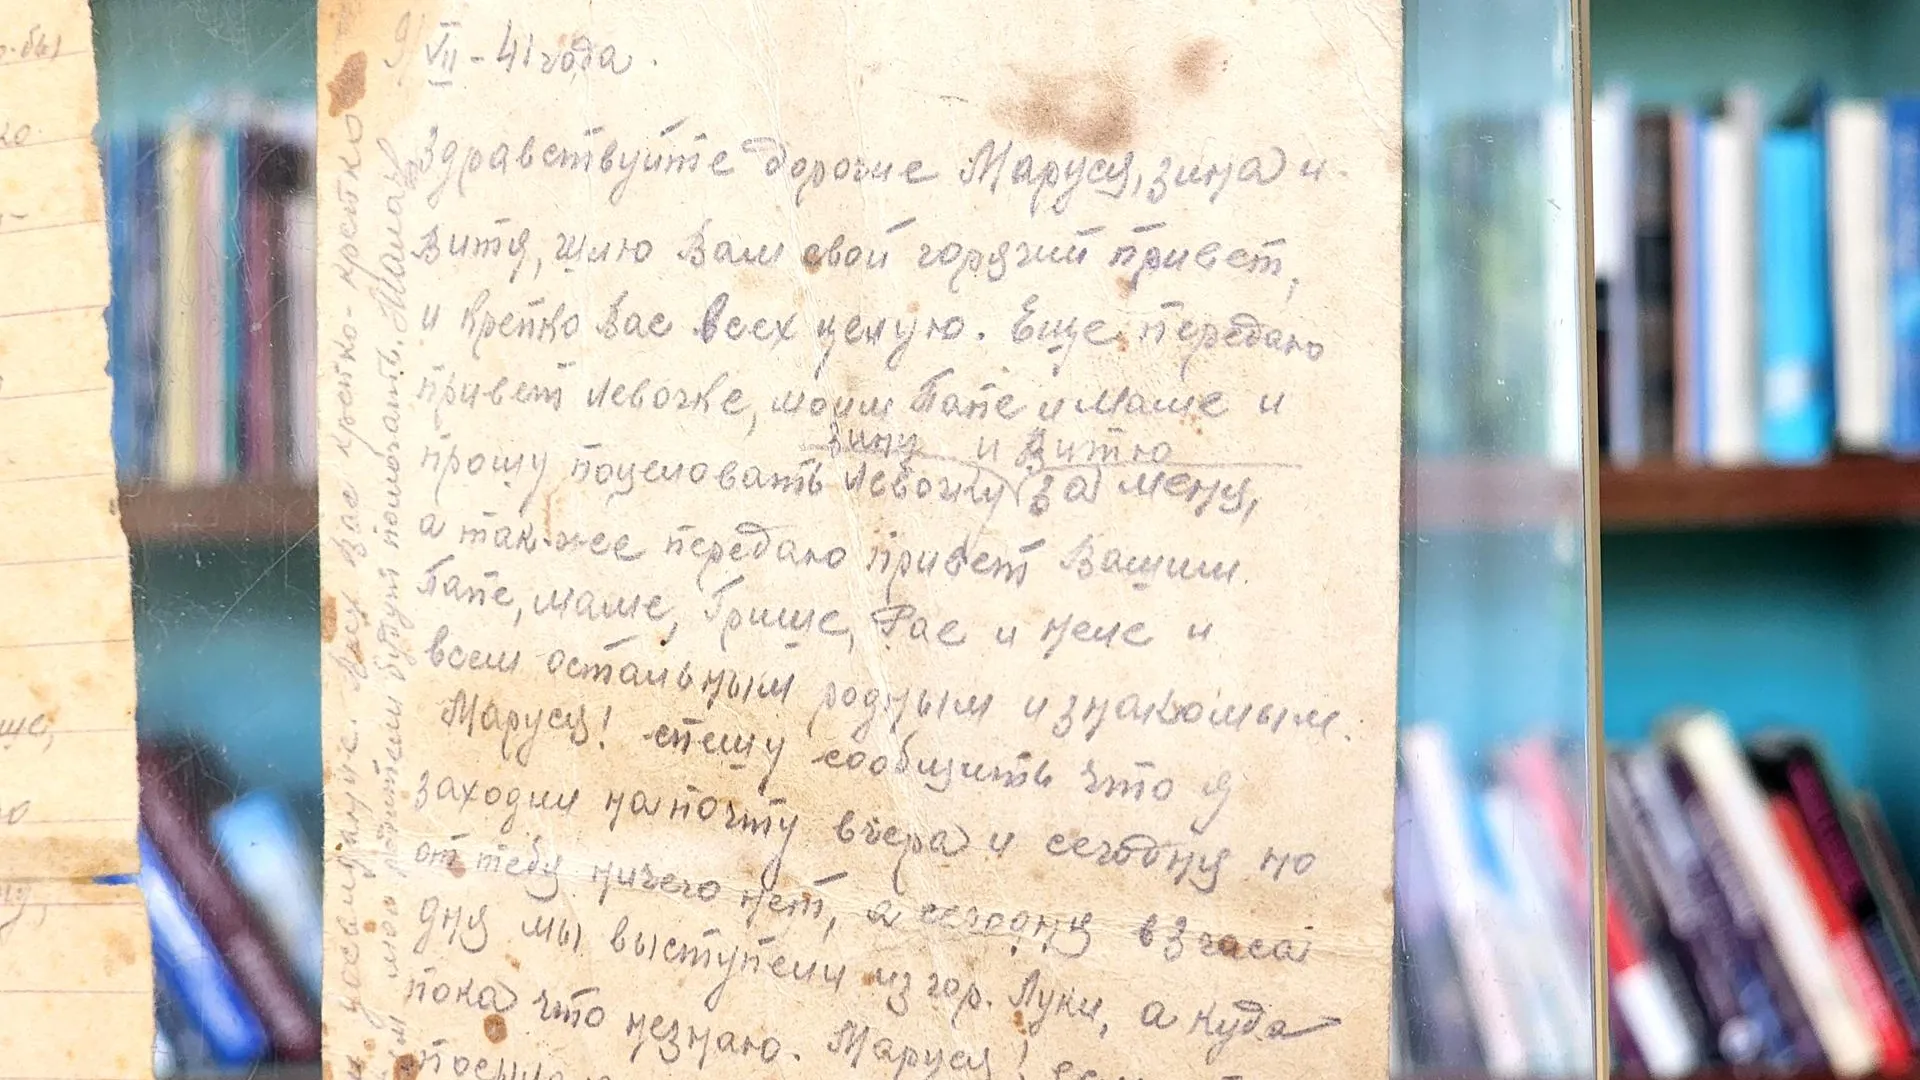 9/VII - 41 года.
Здравствуйте дорогие Маруся, Зина и
Витя, шлю Вам свой горячий привет,
и крепко Вас всех целую. Еще передаю
привет Левочке, моим Папе и Маме и
Зину и Витю
прошу поцеловать Левочку (за) меня,
а так-же передаю привет Вашим
Папе, маме, Грише, Рае и неле и
всем остальным родным и знакомым.
Маруся! спешу сообщить что я
заходил на почту вчера и сегодня но
от тебя ничего нет, а сегодня в 3 часа
дня мы выступели из гор. Луки, а куда
пока что незнаю. Маруся!
Вас крепко-крепко
моо родители будут помогать. Мама